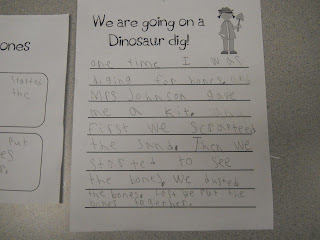 We are going on a
Dinosaur dig!
ones
Started
the
Put
es
one time I was
diging for bones. and
Mrs Johnson gave
me a kit.
First we scrateed
the sand. Then we
started to see
the bones. We dusted
the bones. Last we Put the
bones together.